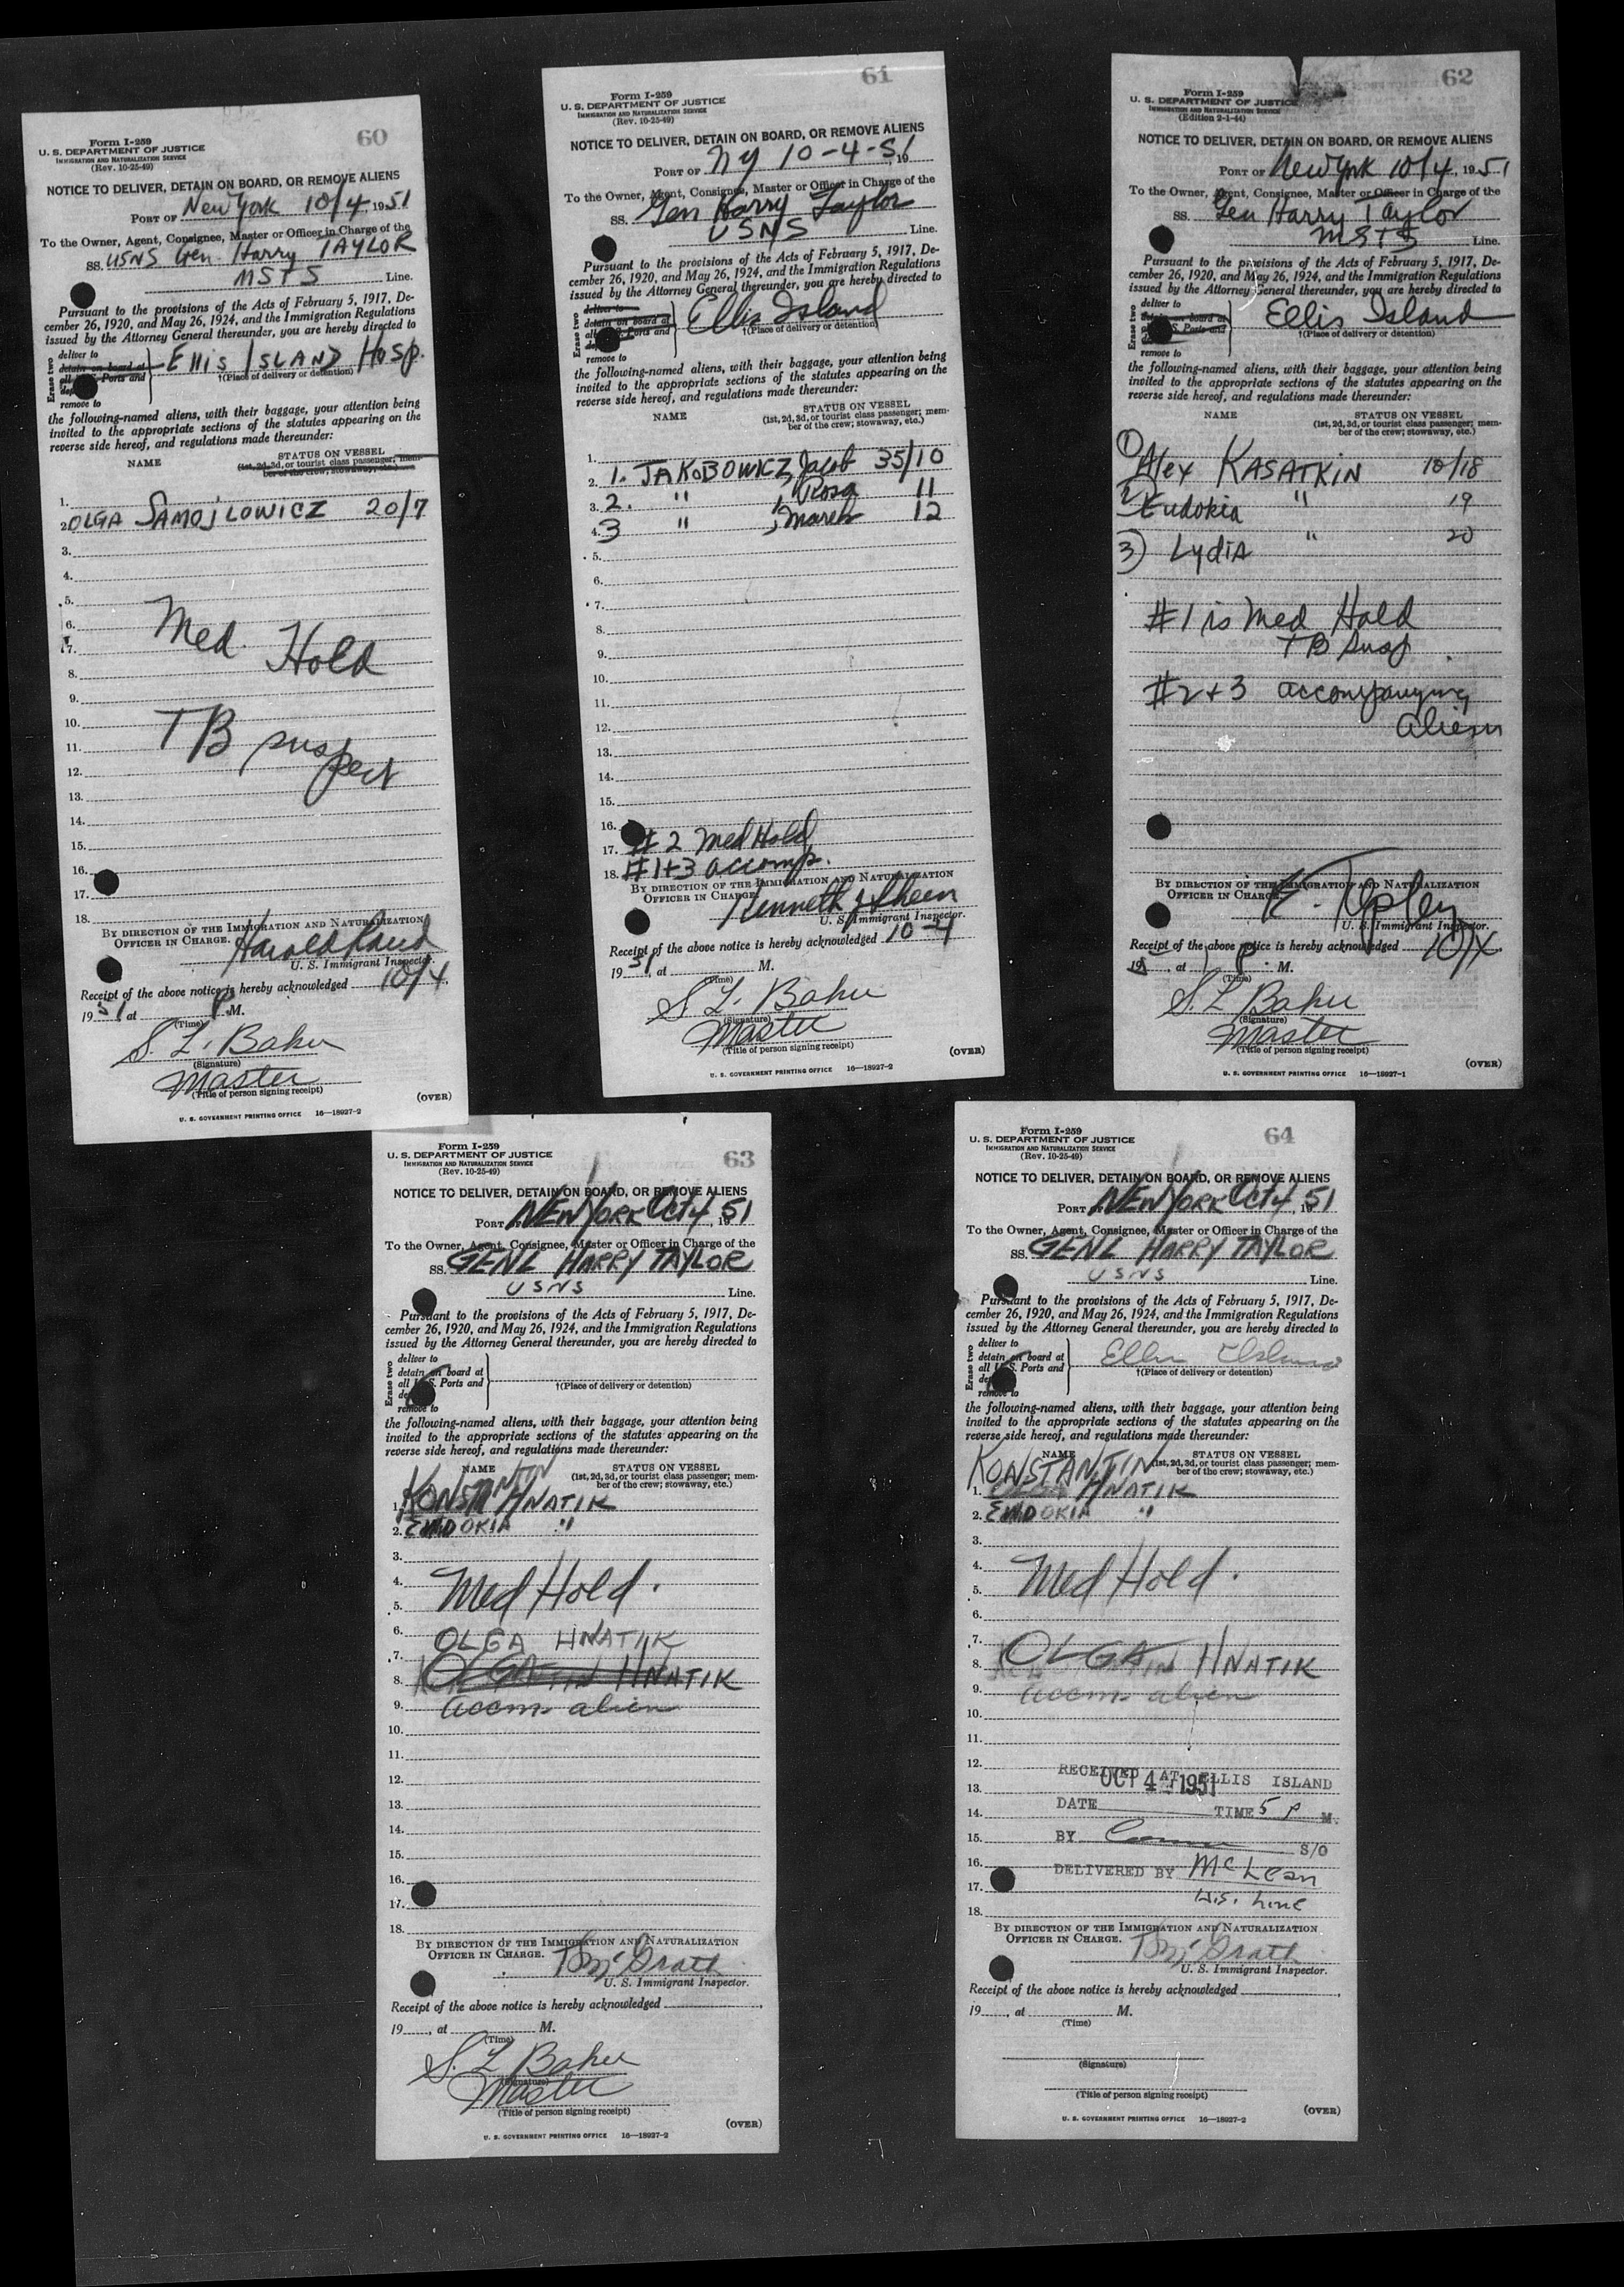 60
Form I-259
U. S. DEPARTMENT OF JUSTICE
IMMIGRATION AND NATURALIZATION SERVICE
(Rev. 10-25-49)
NOTICE TO DELIVER, DETAIN ON BOARD, OR REMOVE ALIENS
PORT OF New York 10/4, 1951
To the Owner, Agent, Consignee, Master or Officer in Charge of the
SS. USNS Gen. Harry TAYLOR
MSTS Line.
Pursuant to the provisions of the Acts of February 5, 1917, De-
cember 26, 1920, and May 26, 1924, and the Immigration Regulations
issued by the Attorney General thereunder, you are hereby directed to
Erase two
deliver to
detain on board at
all U.S. Ports and
remove to
Ellis ISLAND Hosp.
†(Place of delivery or detention)
the following-named aliens, with their baggage, your attention being
invited to the appropriate sections of the statutes appearing on the
reverse side hereof, and regulations made thereunder:
NAME STATUS ON VESSEL
(1st, 2d, 3d, or tourist class passenger; mem-
ber of the crew; stowaway, etc.)
1.
2. OLGA SAMOJLOWICZ 20/7
3.
4.
5.
6.
7. Med. Hold
8.
9.
10.
11. TB suspect
12.
13.
14.
15.
16.
17.
18.
BY DIRECTION OF THE IMMIGRATION AND NATURALIZATION
OFFICER IN CHARGE. Harold Rand
U. S. Immigrant Inspector.
Receipt of the above notice is hereby acknowledged 10/4,
1951, at P.M.
(Time)
S. L. Baker
(Signature)
Master
(Title of person signing receipt)
(OVER)
U. S. GOVERNMENT PRINTING OFFICE 16—18927-2
61
Form I-259
U. S. DEPARTMENT OF JUSTICE
IMMIGRATION AND NATURALIZATION SERVICE
(Rev. 10-25-49)
NOTICE TO DELIVER, DETAIN ON BOARD, OR REMOVE ALIENS
PORT OF NY 10-4-51, 19
To the Owner, Agent, Consignee, Master or Officer in Charge of the
SS. Gen Harry Taylor
USNS Line.
Pursuant to the provisions of the Acts of February 5, 1917, De-
cember 26, 1920, and May 26, 1924, and the Immigration Regulations
issued by the Attorney General thereunder, you are hereby directed to
Erase two
deliver to
detain on board at
all Ports and
remove to
Ellis Island
†(Place of delivery or detention)
the following-named aliens, with their baggage, your attention being
invited to the appropriate sections of the statutes appearing on the
reverse side hereof, and regulations made thereunder:
NAME STATUS ON VESSEL
(1st, 2d, 3d, or tourist class passenger; mem-
ber of the crew; stowaway, etc.)
1.
2. 1. JAKOBOWICZ, Jacob 35/10
3. 2. " , Rosa 11
4. 3 " , Marek 12
5.
6.
7.
8.
9.
10.
11.
12.
13.
14.
15.
16.
17. #2 Med Hold
18. #1+3 accomp.
BY DIRECTION OF THE IMMIGRATION AND NATURALIZATION
OFFICER IN CHARGE. Kenneth J Sheen
U. S. Immigrant Inspector.
Receipt of the above notice is hereby acknowledged 10-4
1951, at M.
(Time)
S. L. Baker
(Signature)
Master
(Title of person signing receipt)
(OVER)
U. S. GOVERNMENT PRINTING OFFICE 16—18927-2
62
Form I-259
U. S. DEPARTMENT OF JUSTICE
IMMIGRATION AND NATURALIZATION SERVICE
(Edition 2-1-44)
NOTICE TO DELIVER, DETAIN ON BOARD, OR REMOVE ALIENS
PORT OF New York 10/4, 1951
To the Owner, Agent, Consignee, Master or Officer in Charge of the
SS. Gen Harry Taylor
MSTS Line.
Pursuant to the provisions of the Acts of February 5, 1917, De-
cember 26, 1920, and May 26, 1924, and the Immigration Regulations
issued by the Attorney General thereunder, you are hereby directed to
Erase two
deliver to
detain on board at
S. Ports and
remove to
Ellis Island
†(Place of delivery or detention)
the following-named aliens, with their baggage, your attention being
invited to the appropriate sections of the statutes appearing on the
reverse side hereof, and regulations made thereunder:
NAME STATUS ON VESSEL
(1st, 2d, 3d, or tourist class passenger; mem-
ber of the crew; stowaway, etc.)
1) Alex KASATKIN 10/18
2) Eudokia " 19
3) Lydia " 20
#1 is Med Hold
TB Susp.
#2+3 accompanying
aliens
BY DIRECTION OF THE IMMIGRATION AND NATURALIZATION
OFFICER IN CHARGE.
U. S. Immigrant Inspector.
Receipt of the above notice is hereby acknowledged 10/4
195, at P. M.
(Time)
S. L. Baker
(Signature)
Master
(Title of person signing receipt)
(OVER)
U. S. GOVERNMENT PRINTING OFFICE 16—18927-1
63
Form I-259
U. S. DEPARTMENT OF JUSTICE
IMMIGRATION AND NATURALIZATION SERVICE
(Rev. 10-25-49)
NOTICE TO DELIVER, DETAIN ON BOARD, OR REMOVE ALIENS
PORT OF NEW YORK Oct 4, 1951
To the Owner, Agent, Consignee, Master or Officer in Charge of the
SS. GENL HARRY TAYLOR
USNS Line.
Pursuant to the provisions of the Acts of February 5, 1917, De-
cember 26, 1920, and May 26, 1924, and the Immigration Regulations
issued by the Attorney General thereunder, you are hereby directed to
Erase two
deliver to
detain on board at
all U.S. Ports and
remove to
†(Place of delivery or detention)
the following-named aliens, with their baggage, your attention being
invited to the appropriate sections of the statutes appearing on the
reverse side hereof, and regulations made thereunder:
NAME STATUS ON VESSEL
(1st, 2d, 3d, or tourist class passenger; mem-
ber of the crew; stowaway, etc.)
1. KONSTANTIN HNATIK
2. EWDOKIA "
3.
4.
5. Med Hold.
6. OLGA HNATIK
7.
8. OLGA HNATIK
9. accom alien
10.
11.
12.
13.
14.
15.
16.
17.
18.
BY DIRECTION OF THE IMMIGRATION AND NATURALIZATION
OFFICER IN CHARGE. McGrath
U. S. Immigrant Inspector.
Receipt of the above notice is hereby acknowledged ,
19 , at M.
(Time)
S. L Baker
(Signature)
Master
(Title of person signing receipt)
(OVER)
U. S. GOVERNMENT PRINTING OFFICE 16—18927-2
64
Form I-259
U. S. DEPARTMENT OF JUSTICE
IMMIGRATION AND NATURALIZATION SERVICE
(Rev. 10-25-49)
NOTICE TO DELIVER, DETAIN ON BOARD, OR REMOVE ALIENS
PORT OF NEW YORK Oct 4, 1951
To the Owner, Agent, Consignee, Master or Officer in Charge of the
SS. GENL HARRY TAYLOR
USNS Line.
Pursuant to the provisions of the Acts of February 5, 1917, De-
cember 26, 1920, and May 26, 1924, and the Immigration Regulations
issued by the Attorney General thereunder, you are hereby directed to
Erase two
deliver to
detain on board at
all U.S. Ports and
remove to
Ellis Island
†(Place of delivery or detention)
the following-named aliens, with their baggage, your attention being
invited to the appropriate sections of the statutes appearing on the
reverse side hereof, and regulations made thereunder:
NAME STATUS ON VESSEL
(1st, 2d, 3d, or tourist class passenger; mem-
ber of the crew; stowaway, etc.)
KONSTANTIN
1. OLGA HNATIK
2. EWDOKIA "
3.
4.
5. Med Hold.
6.
7.
8. OLGA HNATIK
9. accom alien
10.
11.
12.
13. RECEIVED AT ELLIS ISLAND
OCT 4 1951
14. DATE TIME 5 P M.
15. BY S/O
16. DELIVERED BY McLean
17. U.S. Line
18.
BY DIRECTION OF THE IMMIGRATION AND NATURALIZATION
OFFICER IN CHARGE. McGrath
U. S. Immigrant Inspector.
Receipt of the above notice is hereby acknowledged ,
19 , at M.
(Time)
(Signature)
(Title of person signing receipt)
(OVER)
U. S. GOVERNMENT PRINTING OFFICE 16—18927-2